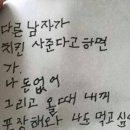 다른 남자가
치킨 사준다고하면
가.
나 돈없어
그리고 올때 내게
포장해오라 나도 먹고싶